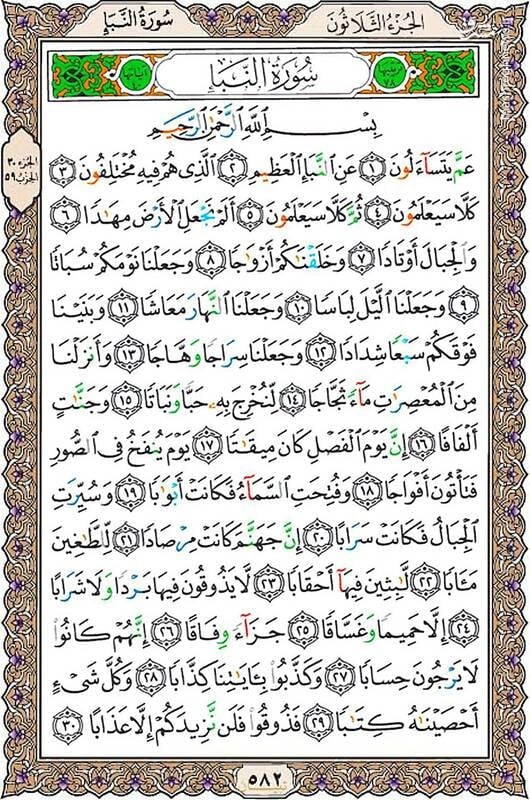 الجزء الثلاثون
سورة النبإ
سُورَةُ النَّبَإِ
بِسْمِ ٱللَّهِ ٱلرَّحْمَٰنِ ٱلرَّحِيمِ
عَمَّ يَتَسَآءَلُونَ ١ عَنِ ٱلنَّبَإِ ٱلْعَظِيمِ ٢ ٱلَّذِى هُمْ فِيهِ مُخْتَلِفُونَ ٣
كَلَّا سَيَعْلَمُونَ ٤ ثُمَّ كَلَّا سَيَعْلَمُونَ ٥ أَلَمْ نَجْعَلِ ٱلْأَرْضَ مِهَٰدًا ٦
وَٱلْجِبَالَ أَوْتَادًا ٧ وَخَلَقْنَٰكُمْ أَزْوَٰجًا ٨ وَجَعَلْنَا نَوْمَكُمْ سُبَاتًا
٩ وَجَعَلْنَا ٱلَّيْلَ لِبَاسًا ١٠ وَجَعَلْنَا ٱلنَّهَارَ مَعَاشًا ١١ وَبَنَيْنَا
فَوْقَكُمْ سَبْعًا شِدَادًا ١٢ وَجَعَلْنَا سِرَاجًا وَهَّاجًا ١٣ وَأَنزَلْنَا
مِنَ ٱلْمُعْصِرَٰتِ مَآءً ثَجَّاجًا ١٤ لِّنُخْرِجَ بِهِۦ حَبًّا وَنَبَاتًا ١٥ وَجَنَّٰتٍ
أَلْفَافًا ١٦ إِنَّ يَوْمَ ٱلْفَصْلِ كَانَ مِيقَٰتًا ١٧ يَوْمَ يُنفَخُ فِى ٱلصُّورِ
فَتَأْتُونَ أَفْوَاجًا ١٨ وَفُتِحَتِ ٱلسَّمَآءُ فَكَانَتْ أَبْوَٰبًا ١٩ وَسُيِّرَتِ
ٱلْجِبَالُ فَكَانَتْ سَرَابًا ٢٠ إِنَّ جَهَنَّمَ كَانَتْ مِرْصَادًا ٢١ لِّلطَّٰغِينَ
مَـَٔابًا ٢٢ لَّٰبِثِينَ فِيهَآ أَحْقَابًا ٢٣ لَّا يَذُوقُونَ فِيهَا بَرْدًا وَلَا شَرَابًا
٢٤ إِلَّا حَمِيمًا وَغَسَّاقًا ٢٥ جَزَآءً وِفَاقًا ٢٦ إِنَّهُمْ كَانُوا۟
لَا يَرْجُونَ حِسَابًا ٢٧ وَكَذَّبُوا۟ بِـَٔايَٰتِنَا كِذَّابًا ٢٨ وَكُلَّ شَىْءٍ
أَحْصَيْنَٰهُ كِتَٰبًا ٢٩ فَذُوقُوا۟ فَلَن نَّزِيدَكُمْ إِلَّا عَذَابًا ٣٠
الجزء ٣٠
الحزب ٥٩
٥٨٢